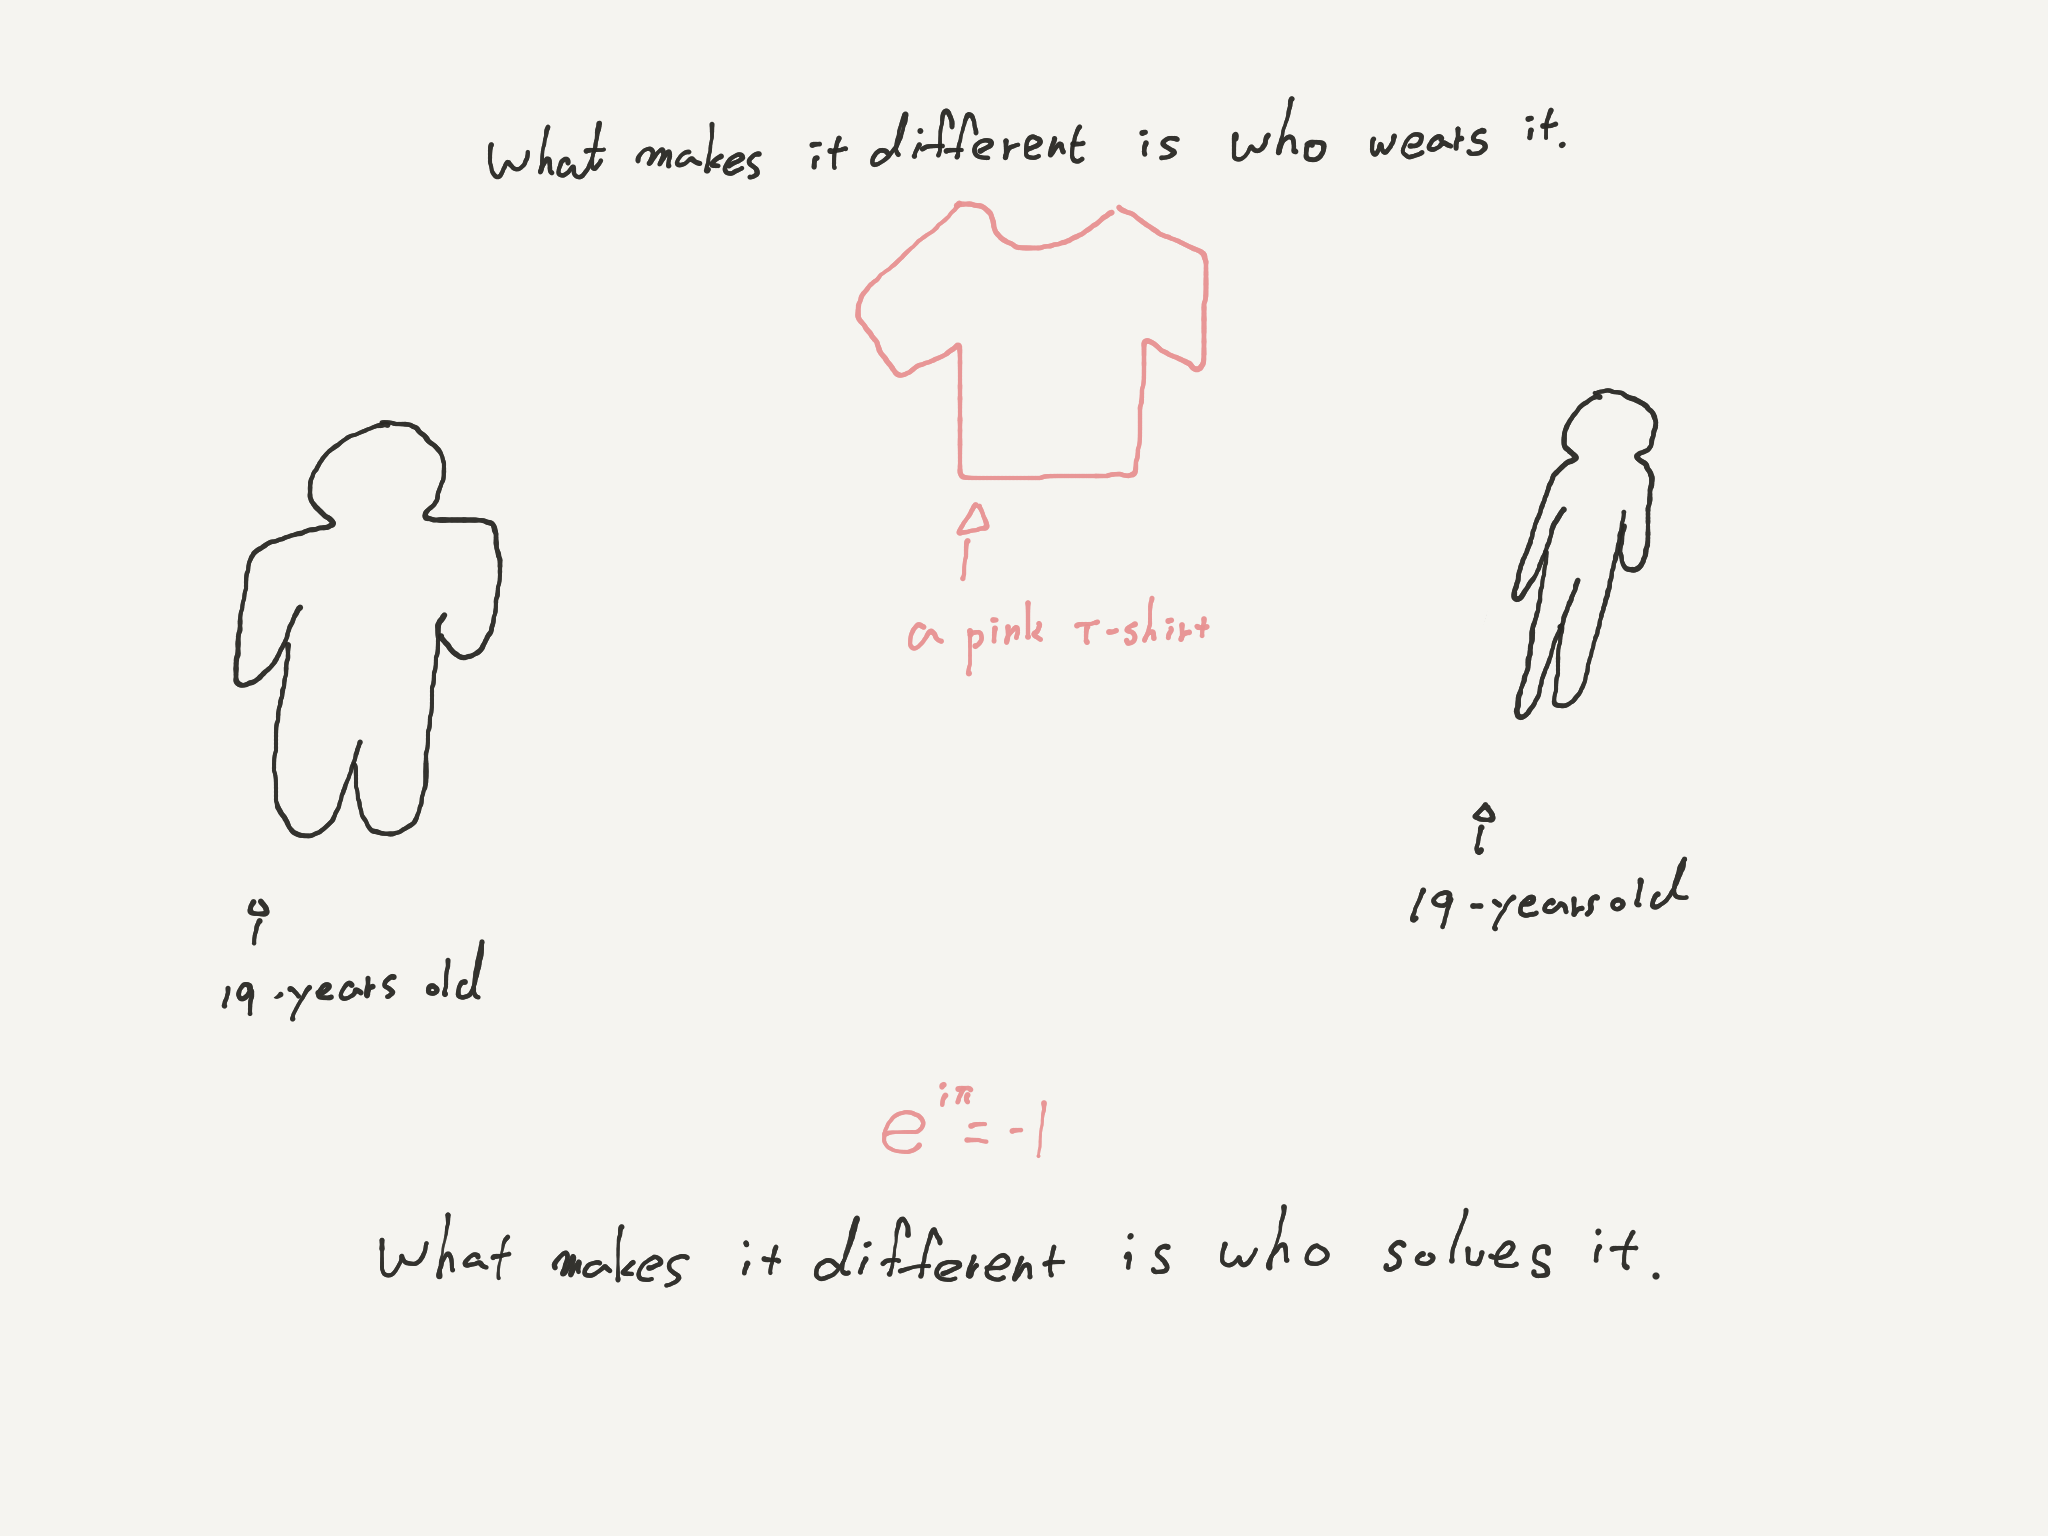 What makes it different is who wears it.
a pink T-shirt
19-years old
19-years old
e^{iπ} = -1
What makes it different is who solves it.